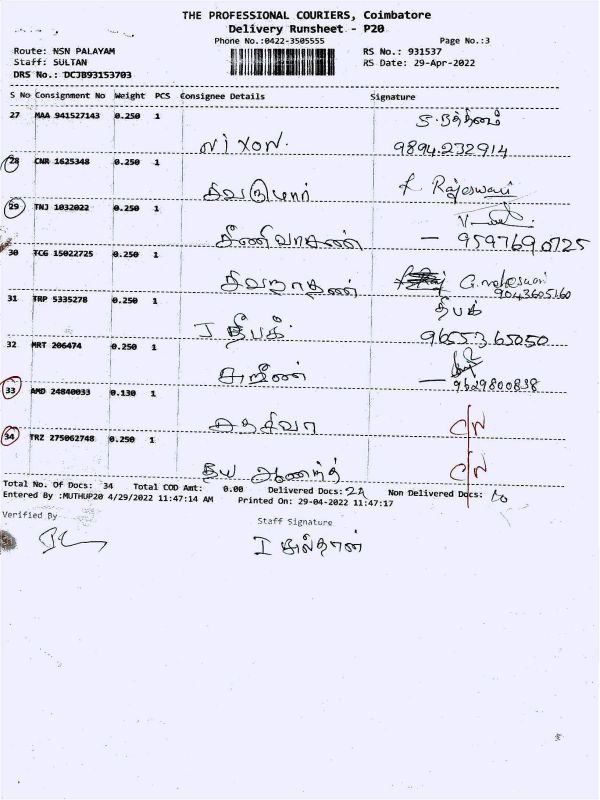 THE PROFESSIONAL COURIERS, Coimbatore
Delivery Runsheet - P20
Phone No.:0422-3505555 Page No.:3
Route: NSN PALAYAM RS No.: 931537
Staff: SULTAN RS Date: 29-Apr-2022
DRS No.: DCJB93153703
S No Consignment No Weight PCS Consignee Details Signature
27 MAA 941527143 0.250 1
NIXON. 9894232914
28 CNR 1625348 0.250 1
சிவகுமார் K Rajeswari
29 TNJ 1032022 0.250 1
சீனிவாசன் — 9597690725
30 TCG 15022725 0.250 1
சிவநாதன் G. maheswari
9043605160
31 TRP 5335278 0.250 1 தீபக்
J தீபக். 9655365050
32 MRT 206474 0.250 1
— 9629800838
33 AMD 24840033 0.130 1
சதாசிவா C/N
34 TRZ 275062748 0.250 1
ஆனந்த் C/N
Total No. Of Docs: 34 Total COD Amt: 0.00 Delivered Docs: 24 Non Delivered Docs: 10
Entered By :MUTHUP20 4/29/2022 11:47:14 AM Printed On: 29-04-2022 11:47:17
Verified By
Staff Signature
I சுல்தான்